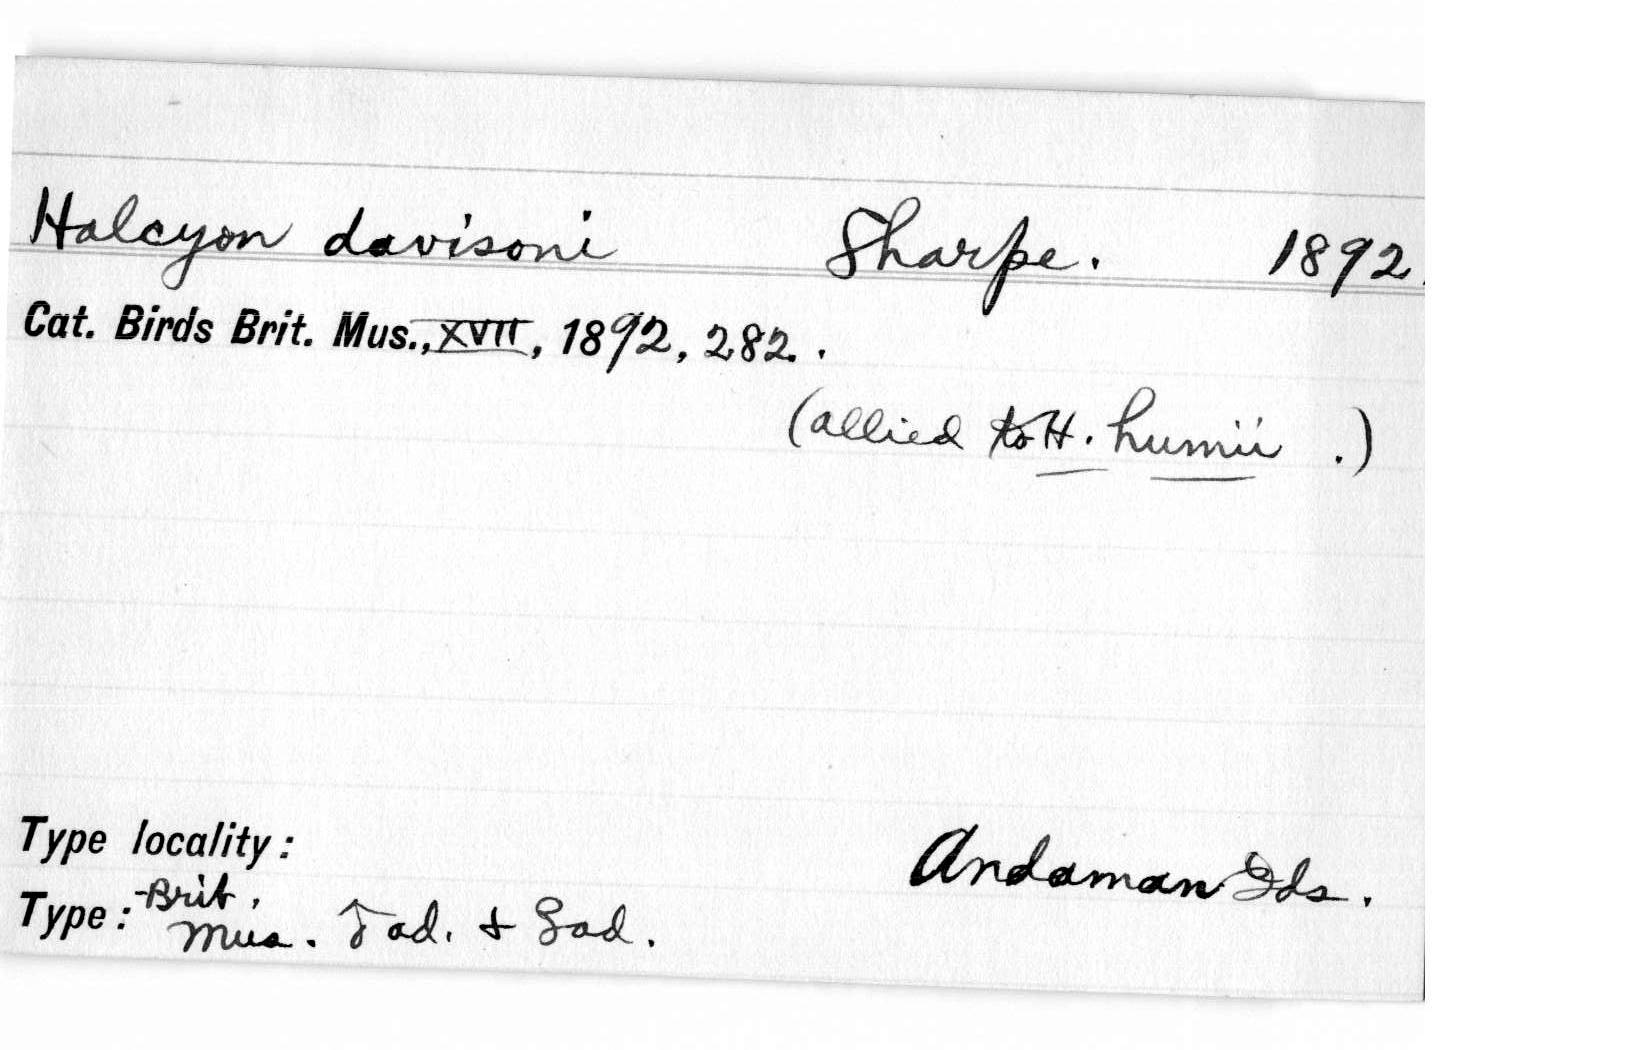 Halcyon davisoni Sharpe. 1892.
Cat. Birds Brit. Mus., XVII, 1892, 282.
(allied to H. humii.)
Type locality: Andaman Ids.
Type: Brit. Mus. ♂ ad. + ♀ ad.